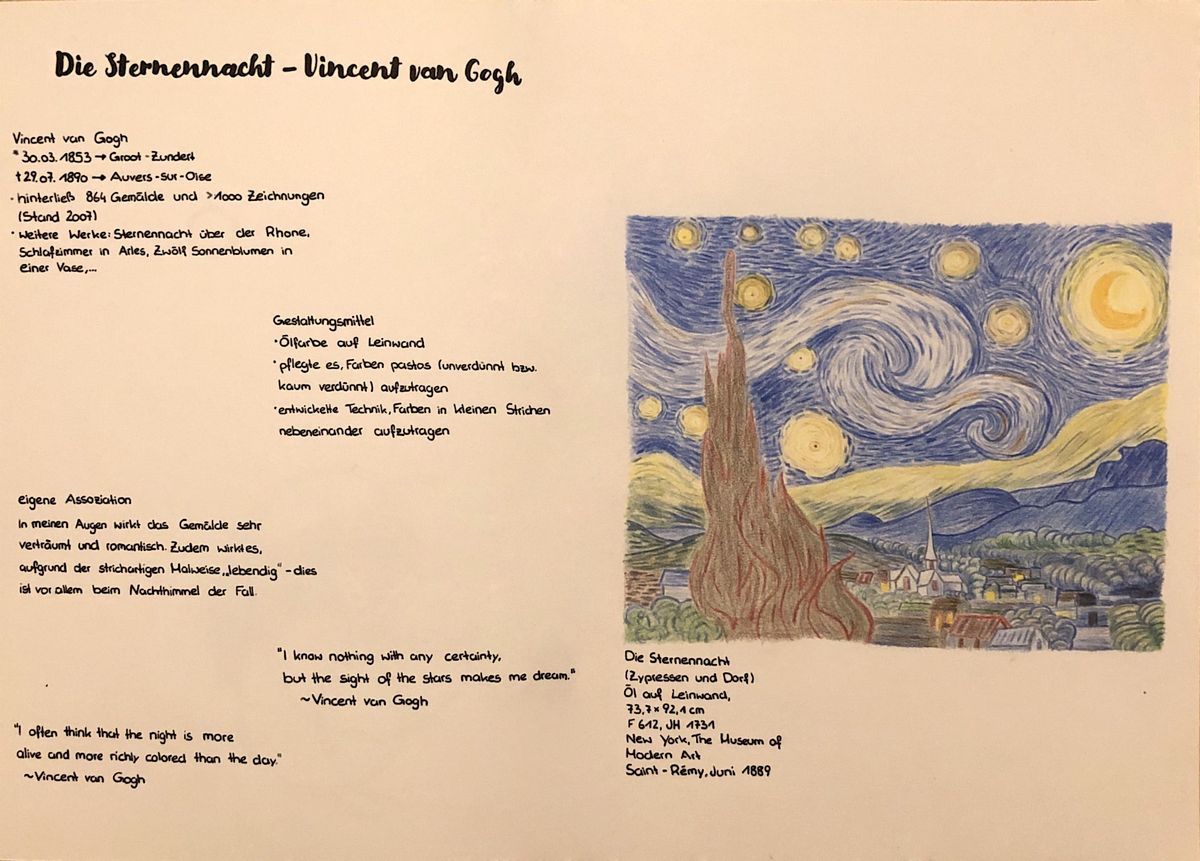 Die Sternennacht – Vincent van Gogh
Vincent van Gogh
* 30.03.1853 → Groot-Zundert
† 29.07.1890 → Auvers-sur-Oise
· hinterließ 864 Gemälde und >1000 Zeichnungen
(Stand 2007)
· weitere Werke: Sternennacht über der Rhone,
Schlafzimmer in Arles, Zwölf Sonnenblumen in
einer Vase,...
Gestaltungsmittel
· Ölfarbe auf Leinwand
· pflegte es, Farben pastos (unverdünnt bzw.
kaum verdünnt) aufzutragen
· entwickelte Technik, Farben in kleinen Strichen
nebeneinander aufzutragen
eigene Assoziation
In meinen Augen wirkt das Gemälde sehr
verträumt und romantisch. Zudem wirkt es,
aufgrund der strichartigen Malweise „lebendig“ - dies
ist vor allem beim Nachthimmel der Fall.
"I know nothing with any certainty,
but the sight of the stars makes me dream."
~Vincent van Gogh
"I often think that the night is more
alive and more richly colored than the day."
~Vincent van Gogh
Die Sternennacht
(Zypressen und Dorf)
Öl auf Leinwand,
73,7 × 92,1 cm
F 612, JH 1731
New York, The Museum of
Modern Art
Saint-Rémy, Juni 1889